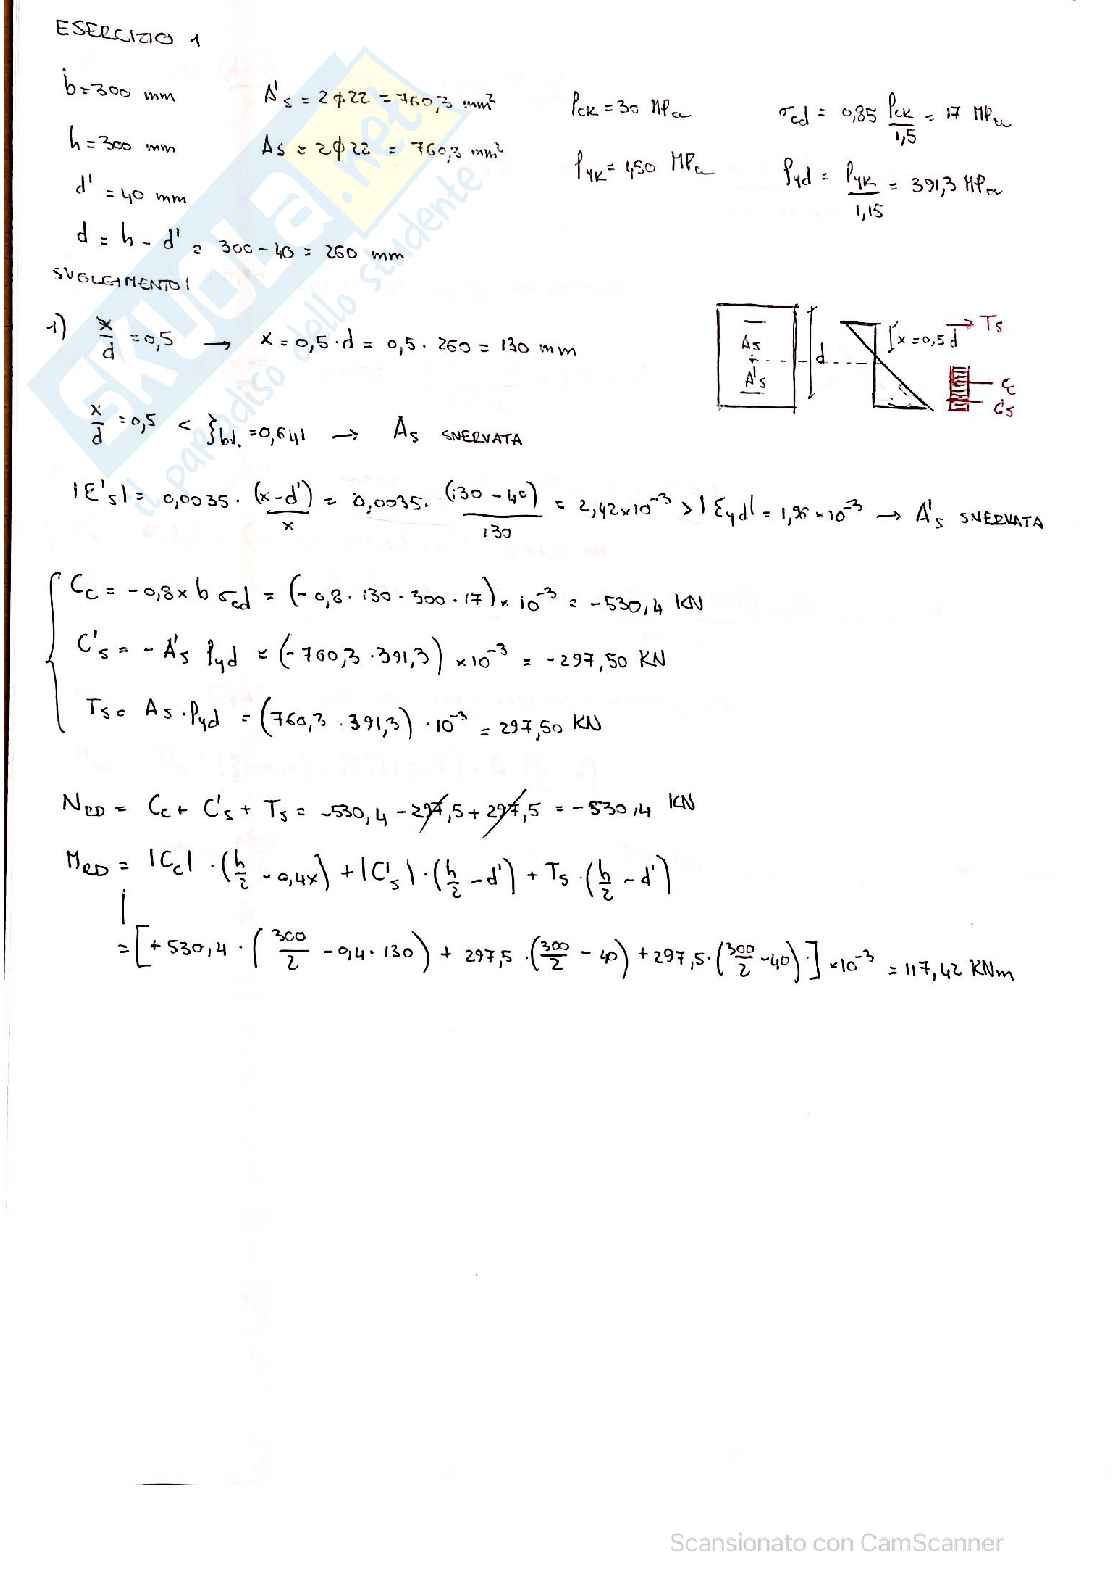 ESERCIZIO 1
b = 300 mm   A's = 2ϕ22 = 760,3 mm²   fck = 30 MPa   σcd = 0,85 fck/1,5 = 17 MPa
h = 300 mm   As = 2ϕ22 = 760,3 mm²   fyk = 450 MPa   fyd = fyk/1,15 = 391,3 MPa
d' = 40 mm
d = h - d' = 300 - 40 = 260 mm
SVOLGIMENTO:
1) x/d = 0,5 → x = 0,5 · d = 0,5 · 260 = 130 mm
As
A's
d
x = 0,5 d
Ts
Cc
C's
x/d = 0,5 < ξbd. = 0,641 → As SNERVATA
|ε's| = 0,0035 · (x - d')/x = 0,0035 · (130 - 40)/130 = 2,42 × 10⁻³ > |εyd| = 1,96 × 10⁻³ → A's SNERVATA
Cc = -0,8 x b σcd = (-0,8 · 130 · 300 · 17) × 10⁻³ = -530,4 KN
C's = - A's fyd = (-760,3 · 391,3) × 10⁻³ = -297,50 KN
Ts = As · fyd = (760,3 · 391,3) · 10⁻³ = 297,50 KN
NRD = Cc + C's + Ts = -530,4 - 297,5 + 297,5 = -530,4 KN
MRD = |Cc| · (h/2 - 0,4x) + |C's| · (h/2 - d') + Ts · (h/2 - d')
= [+530,4 · (300/2 - 0,4 · 130) + 297,5 · (300/2 - 40) + 297,5 · (300/2 - 40)] × 10⁻³ = 117,42 KNm
SKUOLA.net
il paradiso dello studente
Scansionato con CamScanner